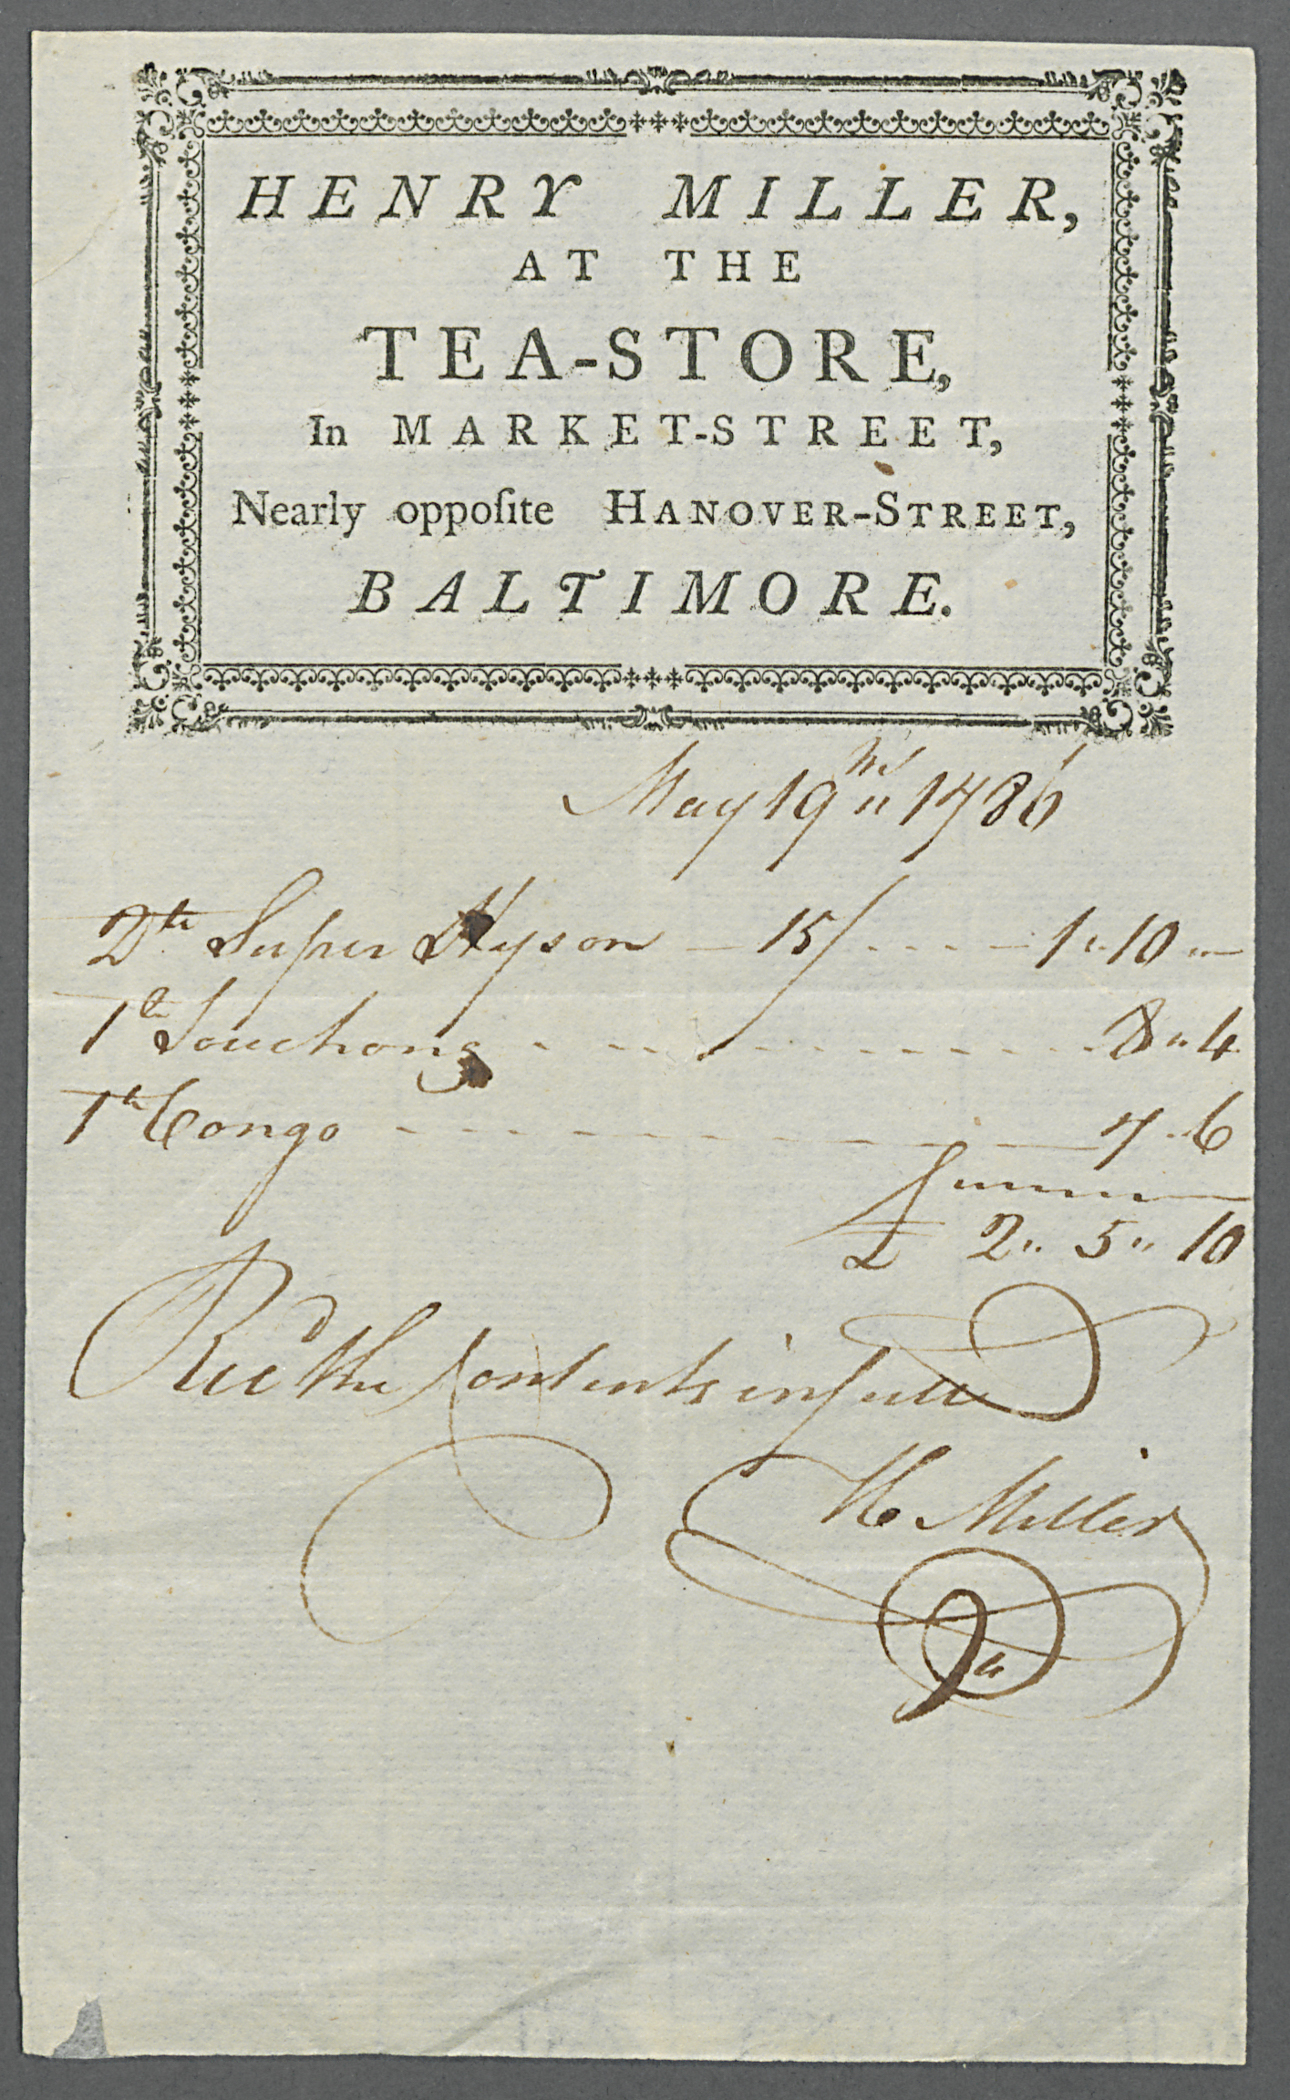 HENRY MILLER,
AT THE
TEA-STORE,
In MARKET-STREET,
Nearly oppoſite HANOVER-STREET,
BALTIMORE.
May 19th 1786
2 lb Super Hyson - 15/ - - - - 1 " 10 " -
1 lb Souchong - - - - - - - - 8 " 4
1 lb Congo - - - - - - - - 7 . 6
£ 2 " 5 " 10
Recd the Contents in full
H Miller